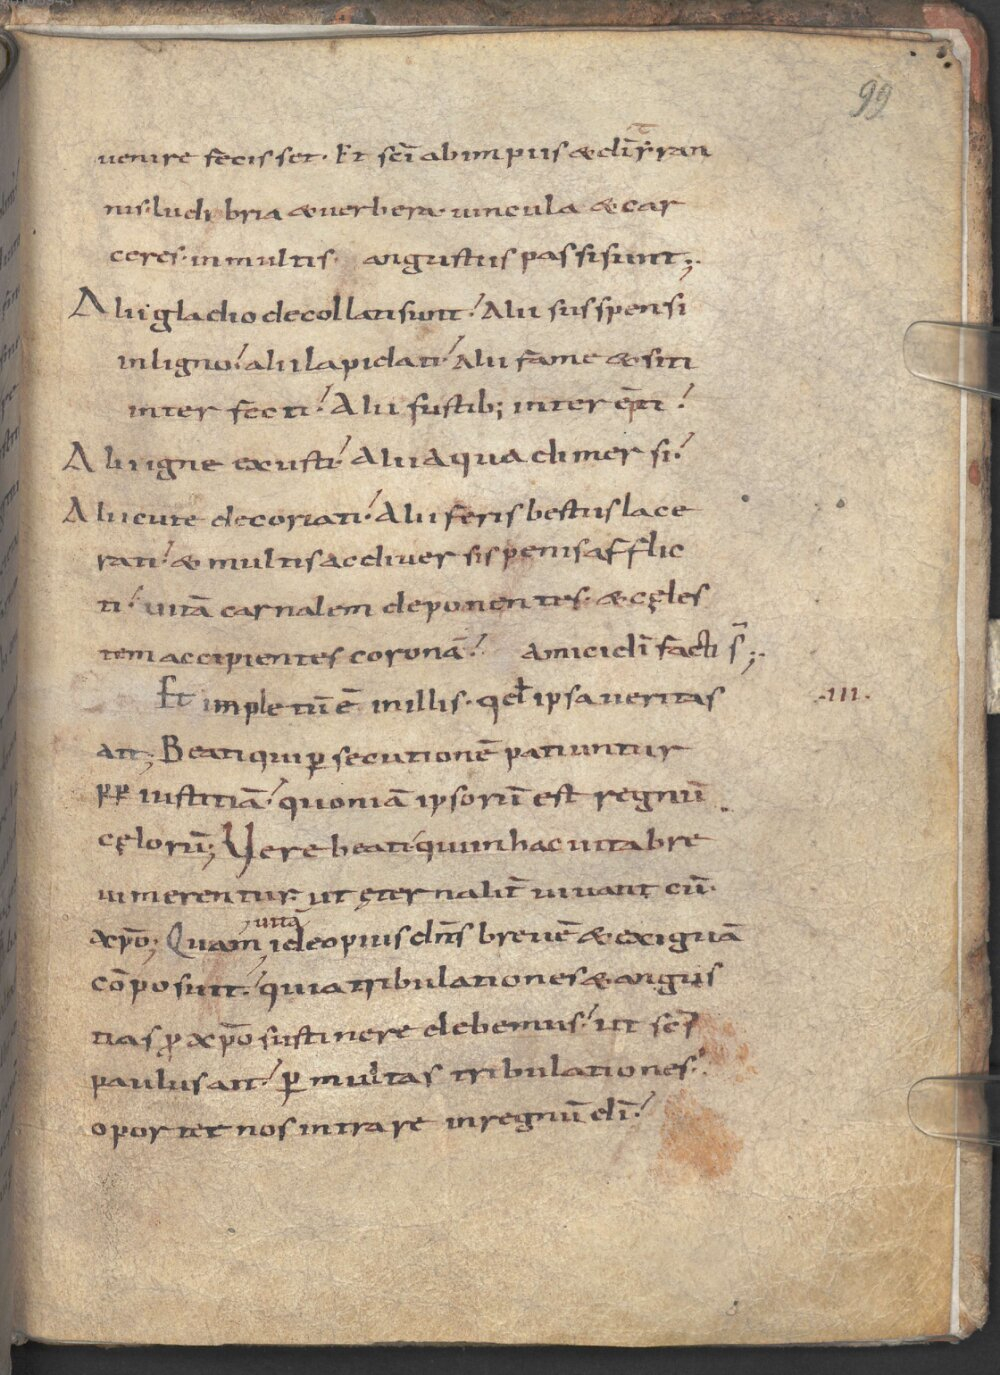 99
uenire fecisset. Et sc̄i ab impiis & dir̄ tyran
nis. ludibria & uerbera. uincula & car
ceres. in multis angustiis passi sunt;
Alii gladio decollati sunt. Alii suspensi
in ligno. alii lapidati. Alii fame & siti
interfecti. Alii fustib; interēpti.
Alii igne exusti. Alii aqua dimersi.
Alii cute decoriati. Alii feris bestiis lace
rati. & multis ac diuersis penis afflic
ti. uitā carnalem deponentes. & cęles
tem accipientes coronā. Amici dī facti s̄;
Et impletū ē in illis. qđ ipsa ueritas
.III.
ait; Beati qui ꝑsecutionē patiuntur
ꝓp iustitiā. quoniā ipsorū est regnū
cęlorū; Vere beati qui in hac uita bre
ui merentur. ut ęternalit̄ uiuant cū.
xp̄o; Quam uitā ideo pius dn̄s breuē & exiguā
cōposuit. quia tribulationes & angus
tias ꝓ xp̄o sustinere debemus. ut sc̄s
paulus ait. ꝑ multas tribulationes.
oportet nos intrare in regnū dī.